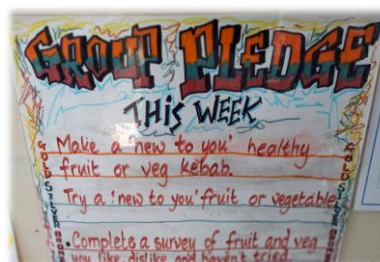 GROUP PLEDGE
THIS WEEK
Make a 'new to you' healthy
fruit or veg kebab.
Try a 'new to you' fruit or vegetable
• Complete a survey of fruit and veg
you like dislike and haven't tried.
GOLD
SILVER
GOLD
SILVER